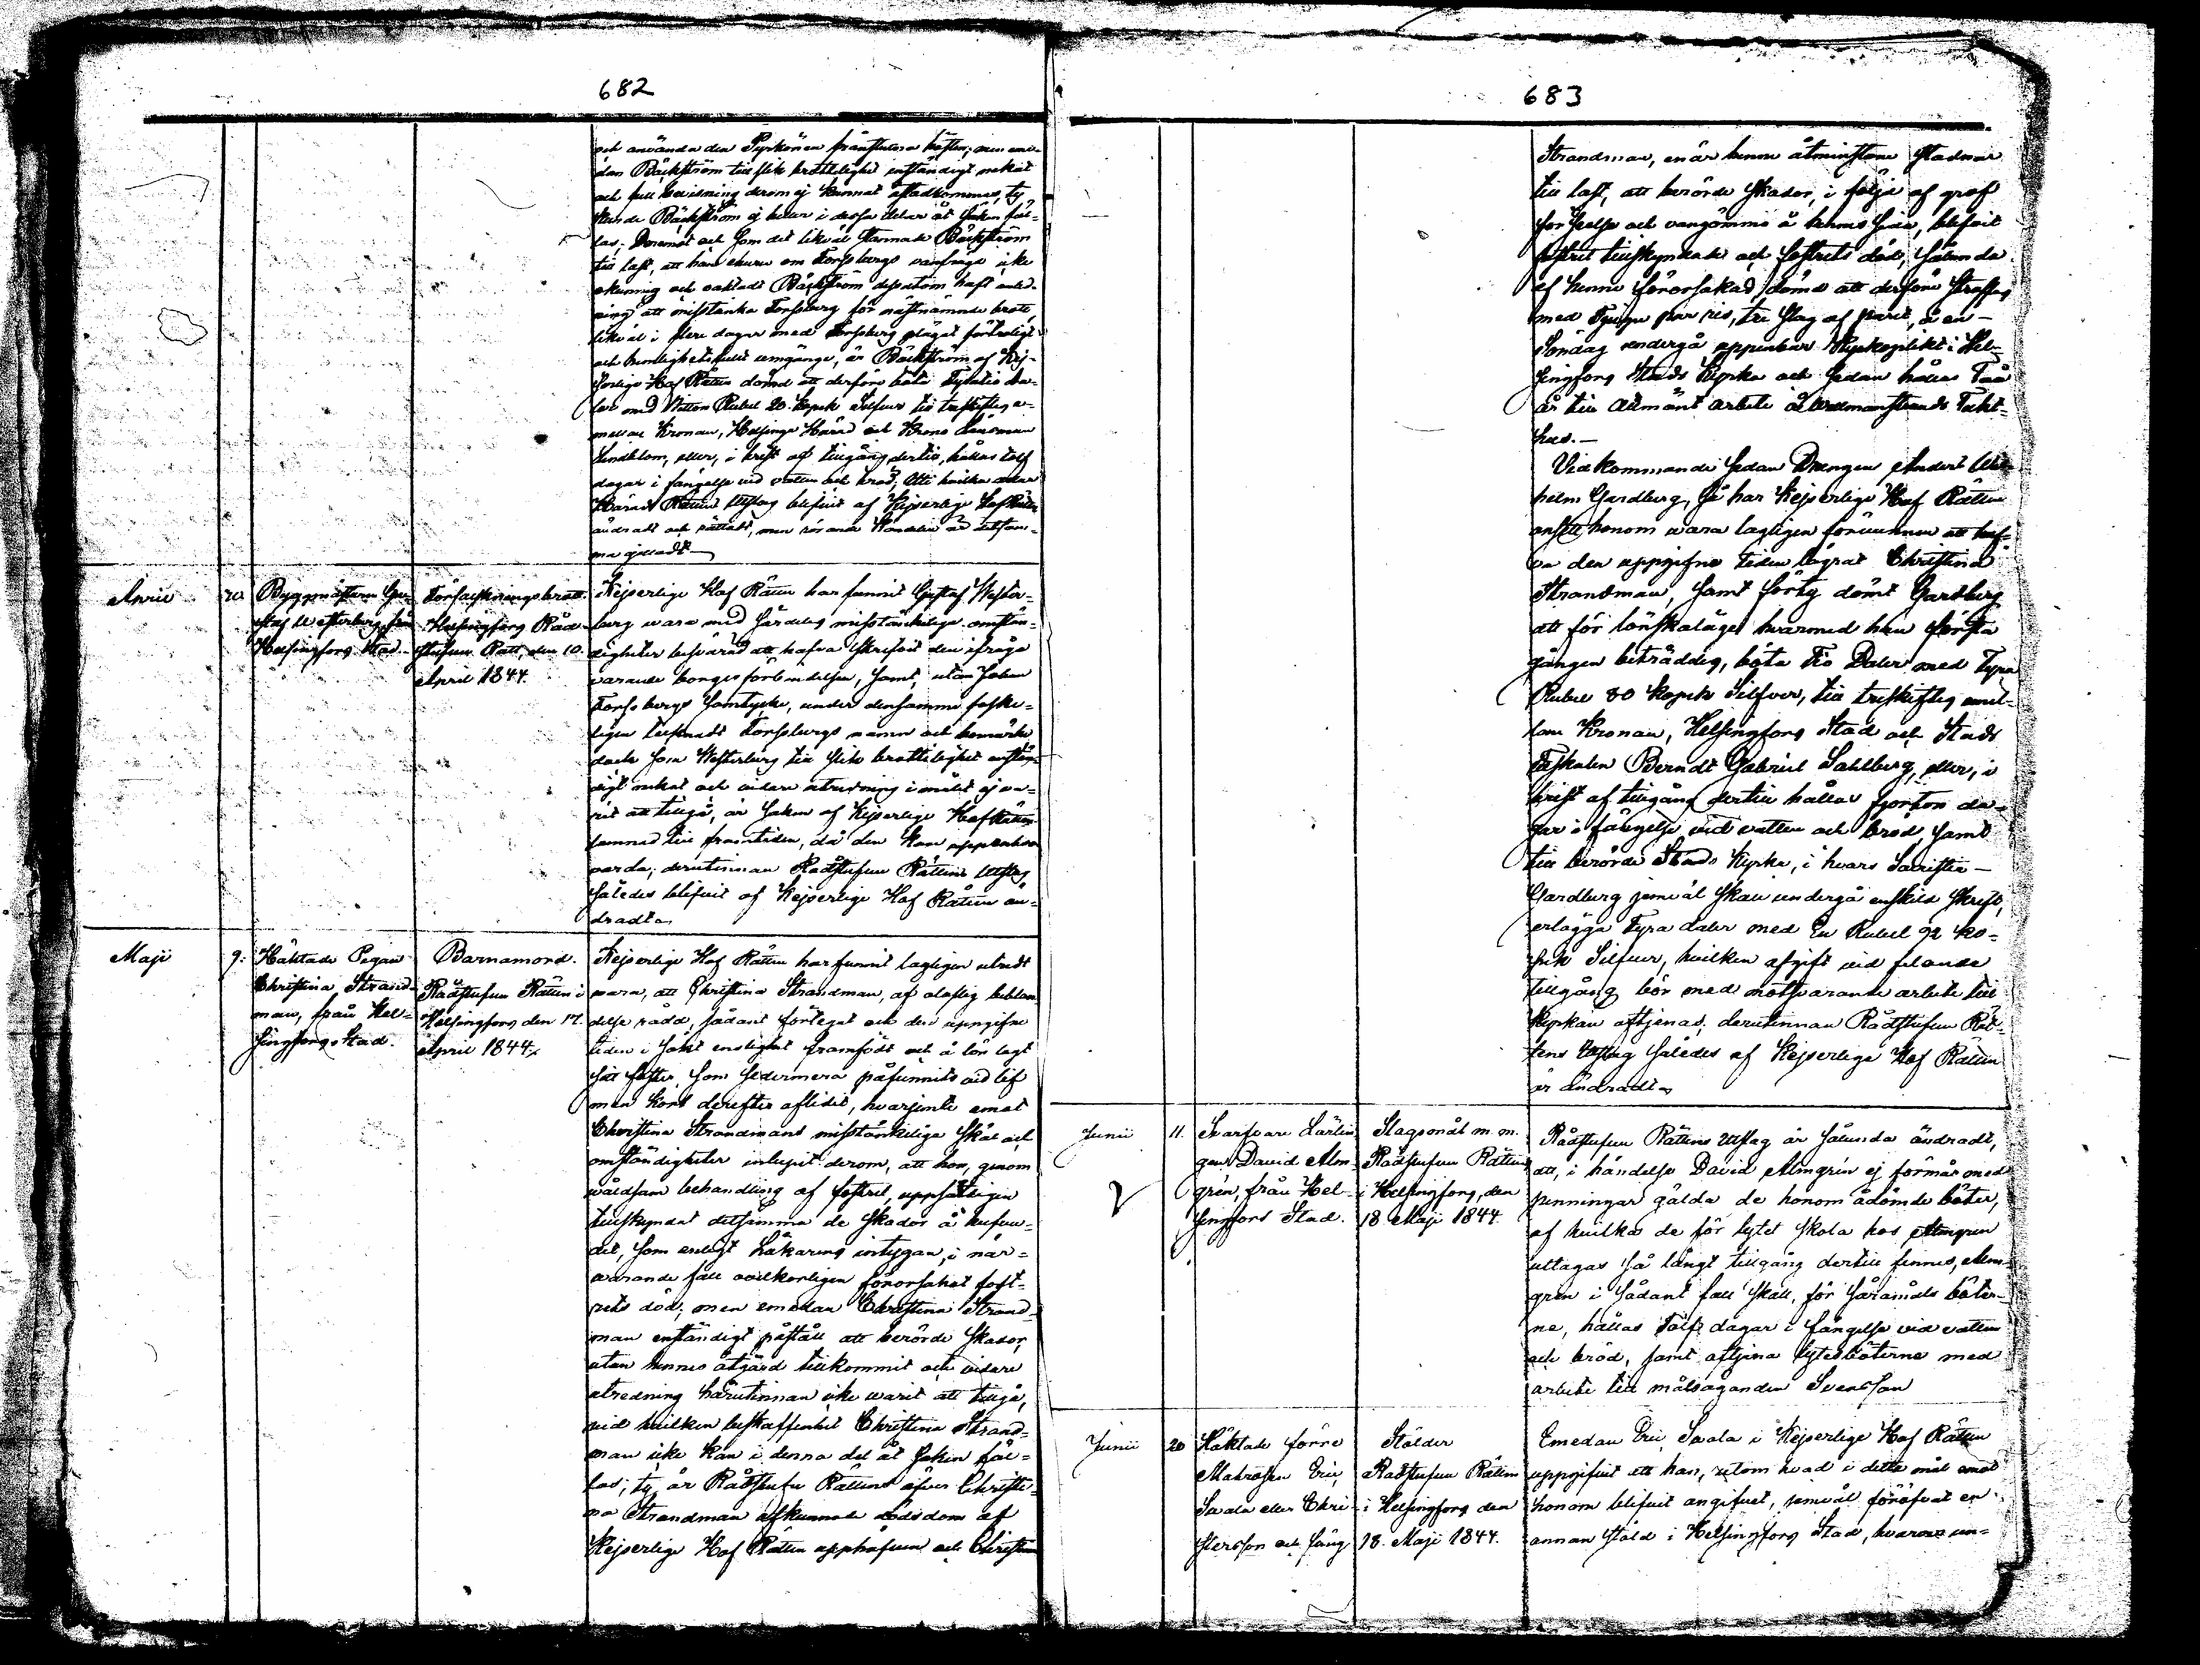 682
och använda den Pyrkönen frånstulna häften; men eme-
dan Bäckström till slik brottslighet enständigt nekat
och full bevisning derom ej kunnat åstadkommas, ty
kunde Bäckström ej heller i dessa delar åt saken fäl-
las; Deremot och som det likväl stannade Bäckström
till last, att han ehuru om Forssbergs vanfräge icke
okunnig och oaktadt Bäckström dessutom haft anled-
ning att misstänka Forssberg för nästnämnde brott,
likväl i flere dagar med Forssberg plägat förtroligt
och hemlighetsfullt umgänge, är Bäckström af Kej-
serlige Hof Rätten dömd att derföre böta Fyratio da-
ler med Nitton Rubel 20. kopek Silfver till treskiftes e-
mellan Kronan, Helsinge Härad och Krono Länsman
Lindblom, eller, i brist af tillgång dertill, hållas tolf
dagar i fängelse vid vatten och bröd; Uti hvilka delar
Härads Rättens Utslag blifvit af Kejserlige Hof Rätten
ändradt och rättadt, men rörande Handelin är detsam-
ma gilladt.
April
20.
Byggmästaren Gu-
staf Westerberg, från
Helsingfors Stad.
Förfalskningsbrott.
Helsingfors Råd-
stufvu Rätt, den 10.
April 1844.
Kejserlige Hof Rätten har funnit Gustaf Wester-
berg vara med särdeles misstänkelige omstän-
digheter besvärad att hafva skrifvit den ifråga
varande borgesförbindelsen, samt, utan Johan
Forssbergs samtycke, under densamma falske-
ligen tecknadt Forssbergs namn och bomärke
dock som Westerberg till slik brottslighet enstän-
digt nekat och vidare utredning i målet ej va-
rit att tillgå, är saken af Kejserlige Hof Rätten
lemnad till framtiden, då den kan uppenbar
varda; derutinnan Rådstufvu Rättens Utslag
således blifvit af Kejserlige Hof Rätten än-
dradt.
Maji
9.
Häktade Pigan
Christina Strand-
man, från Hel-
singfors Stad.
Barnamord.
Rådstufvu Rätten i
Helsingfors den 17.
April 1844.
Kejserlige Hof Rätten har funnit lagligen utredt
vara, att Christina Strandman, af olaflig beblan-
delse rådd, sådant förtegat och den uppgifne
tiden i sökt enslighet framfödt och å lön lagt
sitt foster, som sedermera påfunnits vid lif
men kort derefter aflidit, hvarjemte emot
Christina Strandmans misstänkeliga skäl och
omständigheter inlupit derom, att hon, genom
våldsam behandling af fostret, uppsåtligen
tillskyndat detsamma de skador å hufvu-
det, som enligt Läkarens intygan, i när-
varande fall ovilkorligen förorsakat fost-
rets död; men emedan Christina Strand-
man enständigt påstått att berörde skador,
utan hennes åtgärd tillkommit och vidare
utredning härutinnan icke warit att tillgå,
vid hvilken beskaffenhet Christina Strand-
man icke kan i denna del åt saken fäl-
las; ty är Rådstufvu Rättens öfver Christi-
na Strandman afkunnade dödsdom af
Kejserlige Hof Rätten upphäfven och Christina
683
Strandman, enär henne åtminstone stadnar
till last, att berörde skador, i följe af grof
förseelse och vangömmo å hennes sida, blifvit
fostret tillskyndade och fostrets död, sålunda
af henne förorsakad, dömd att derföre straffas
med Tjugu par ris, tre slag af paret, å en
Söndag undergå uppenbar Kyrkoplikt i Hel-
singfors Stads Kyrka och sedan hållas Två
år till Allmänt arbete å Willmanstrands Tukt-
hus.
Vidkommande sedan Drengen Anders Wil-
helm Gardberg, så har Kejserlige Hof Rätten
ansett honom vara lagligen förvunnen att haf-
va den uppgifne tiden lägrat Christina
Strandman, samt förty dömt Gardberg
att för lönskaläge, hvarmed han första
gången beträddes, böta Tio Daler med Fyra
Rubel 80 kopek Silfver, till treskiftes emel-
lan Kronan, Helsingfors Stad och Stads
Fiskalen Berndt Gabriel Sahlberg, eller, i
brist af tillgång dertill hållas fjorton da-
gar i fängelse vid vatten och bröd, samt
till berörde Stads Kyrka, i hvars Sacristia
Gardberg jemväl skall undergå enskild skrift,
erlägga Fyra daler med En Rubel 92 ko-
pek Silfver, hvilken afgift vid felande
tillgång bör med motsvarande arbete till
kyrkan aftjenas; derutinnan Rådstufvu Rät-
tens Utslag således af Kejserlige Hof Rätten
är ändradt.
Junii
11.
Svarfvare Lärlin-
gen David Alm-
grén, från Hel-
singfors Stad.
Slagsmål m. m.
Rådstufvu Rätten
i Helsingfors, den
18 Maji 1844.
Rådstufvu Rättens Utslag är sålunda ändradt,
att, i händelse David Almgrén ej förmår med
penningar gälda de honom ådömde böter,
af hvilka de för lytet skola hos Almgren
uttagas så långt tillgång dertill finnes, Alm-
grén i sådant fall skall, för såramåls böter-
ne, hållas Tolf dagar i fängelse vid vatten
och bröd, samt aftjena lytesböterne med
arbete till målsäganden Svensson
Junii
20
Häktade förre
Matrosen Eric
Saala eller Chri-
stersson och Jung
Stölder
Rådstufvu Rätten
i Helsingfors den
18. Maji 1844.
Emedan Eric Saala i Kejserlige Hof Rätten
uppgifvit att han, utom hvad i detta mål emot
honom blifvit angifvet, jemväl föröfvat en
annan stöld i Helsingfors Stad, hvarom un-